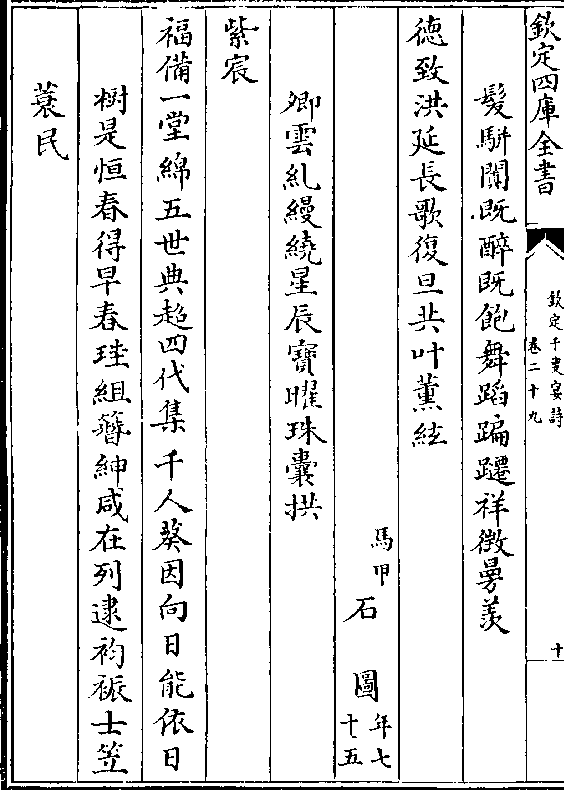 欽定四庫全書
欽定千叟宴詩
卷二十九
十
髮駢闐既醉既飽舞蹈蹁躚祥徴曷羨
德致洪延長歌復旦共叶薫絃
馬甲石圖年七十五
卿雲糺縵繞星辰寶曜珠囊拱
紫宸
福備一堂綿五世典超四代集千人葵因向日能依日
樹是恒春得早春珪組簪紳咸在列逮袀裖士笠
蓑民